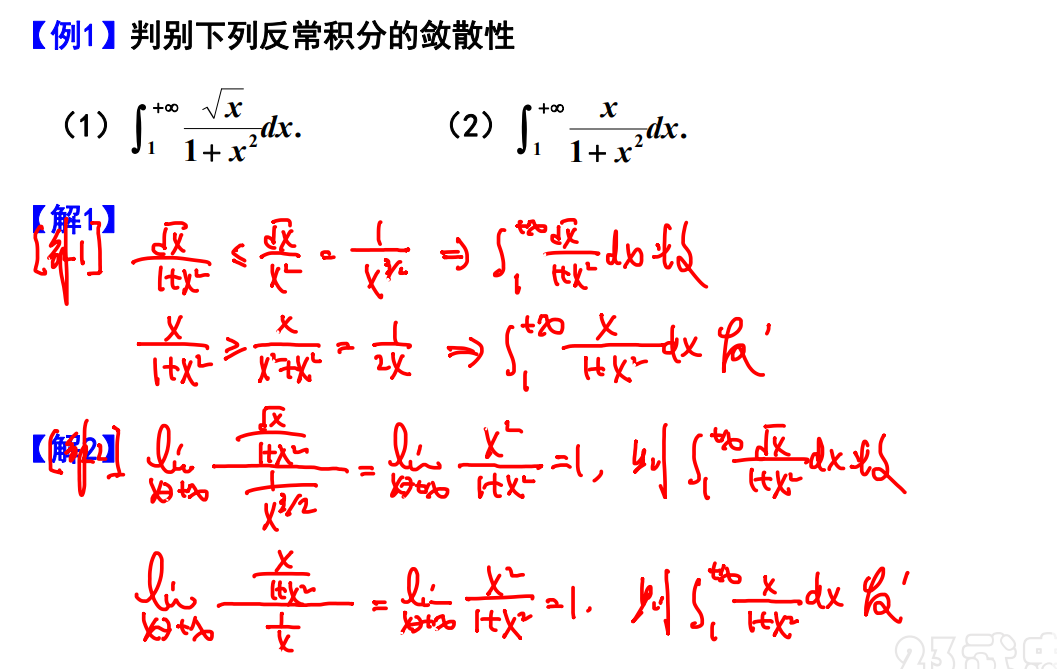 【例1】判别下列反常积分的敛散性
(1) ∫₁^{+∞} √x/(1+x²) dx. (2) ∫₁^{+∞} x/(1+x²) dx.
【解1】
[解1] √x/(1+x²) ≤ √x/x² = 1/x^{3/2} ⇒ ∫₁^{+∞} √x/(1+x²) dx 收敛
x/(1+x²) ≥ x/(x²+x²) = 1/(2x) ⇒ ∫₁^{+∞} x/(1+x²) dx 发
【解2】 lim_{x→+∞} (√x/(1+x²))/(1/x^{3/2}) = lim_{x→+∞} x²/(1+x²) = 1, 则 ∫₁^{+∞} √x/(1+x²) dx 收敛
lim_{x→+∞} (x/(1+x²))/(1/x) = lim_{x→+∞} x²/(1+x²) = 1. 则 ∫₁^{+∞} x/(1+x²) dx 发